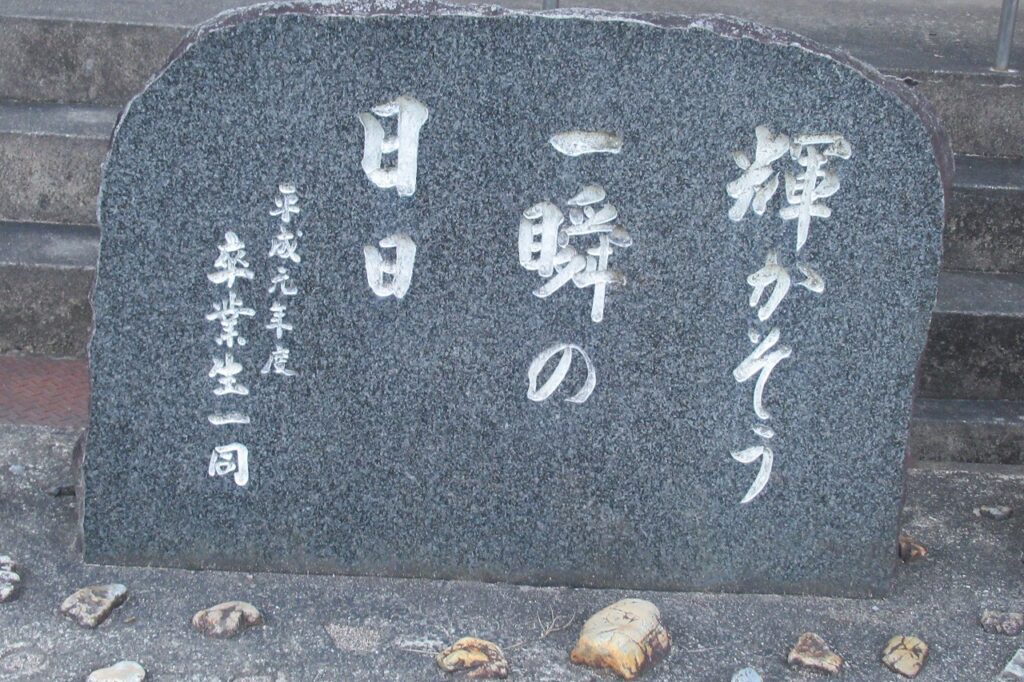 輝かそう
一瞬の
日日
平成元年度
卒業生一同